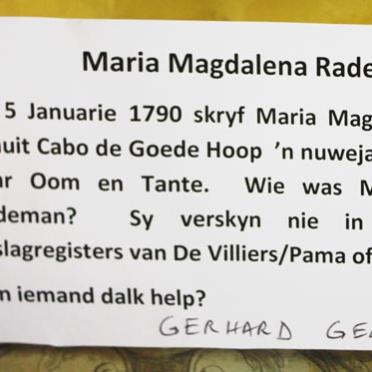 Maria Magdalena Rade
5 Januarie 1790 skryf Maria Mag
uit Cabo de Goede Hoop 'n nuweja
ar Oom en Tante. Wie was M
deman? Sy verskyn nie in
slagregisters van De Villiers/Pama of
n iemand dalk help?
GERHARD GE